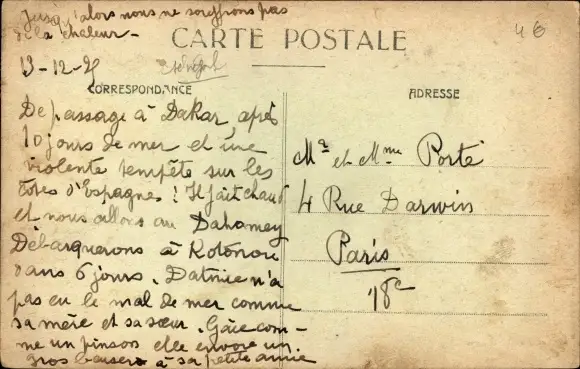 Jusqu'alors nous ne souffrons pas
de la chaleur -
46
CARTE POSTALE
13-12-25
Sénégal
CORRESPONDANCE
ADRESSE
De passage à Dakar, après
10 jours de mer et une
violente tempête sur les
côtes d'Espagne ! Il fait chaud
et nous allons au Dahomey
Débarquerons à Kotonou
dans 6 jours.
n'a
pas eu le mal de mer comme
sa mère et sa sœur. Gaie com-
me un pinson elle envoie un
gros baiser à sa petite amie
Mr et Mme Porté
4 Rue Darwin
Paris
18e